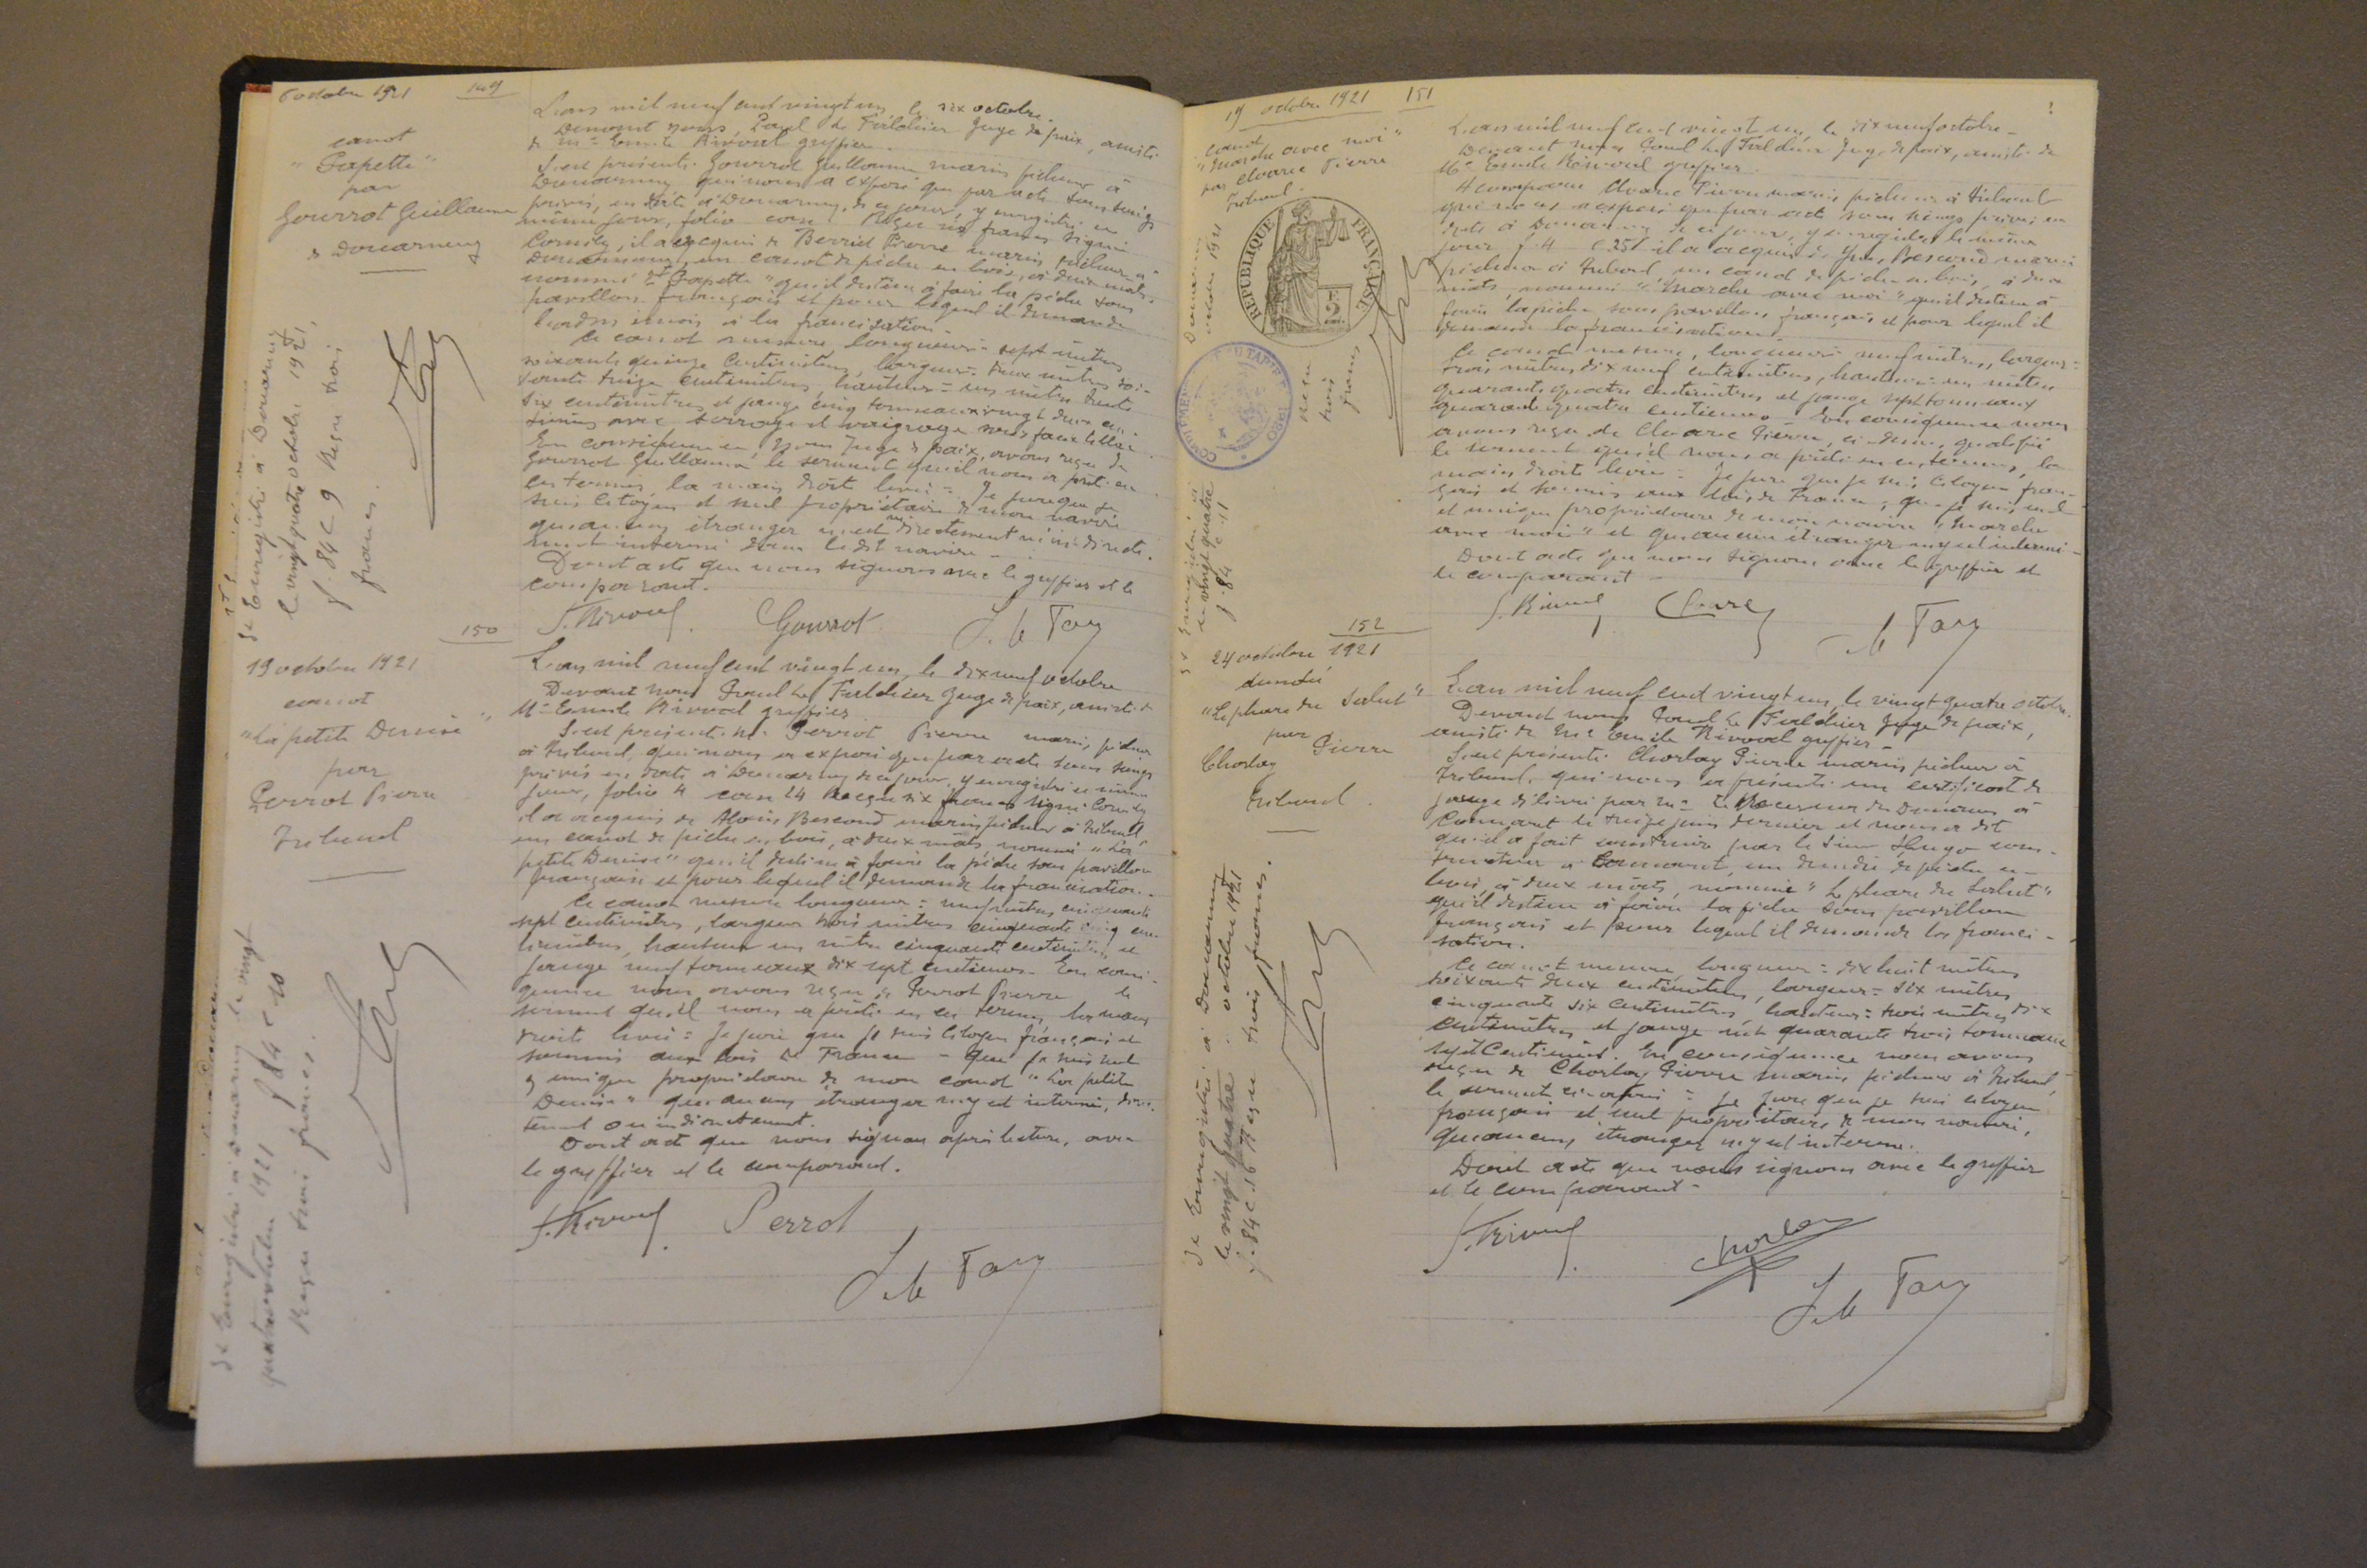 6 octobre 1921
149
canot
"Papette"
par
Gourrot Guillaume
à Douarnenez
L'an mil neuf cent vingt un, le six octobre.
Devant nous, Paul Le Juge de paix, assisté
de Me Emile Rivoal greffier.
S'est présenté Gourrot Guillaume marin pêcheur à
Douarnenez, qui nous a exposé que par acte sous seings
privés, en date à Douarnenez, de ce jour, y enregistré le
même jour, folio case Reçu six francs signé
il a acquis de Pierre marin pêcheur à
Douarnenez, un canot de pêche en bois, à deux mats,
nommé "Papette" qu'il destine à faire la pêche sous
pavillon français et pour lequel il demande
la francisation.
Le canot mesure, longueur = sept mètres
soixante quinze centimètres, largeur = deux mètres soi-
xante treize centimètres, hauteur = un mètre trente
six centimètres et jauge cinq tonneaux vingt deux cen-
tièmes avec
En conséquence, nous Juge de paix, avons reçu de
Gourrot Guillaume le serment qu'il nous a prêté en
ces termes, la main droite levée = Je jure que je
suis citoyen et seul propriétaire de mon navire
qu'aucun étranger n'est directement ni indirecte-
ment intéressé dans le dit navire -
Dont acte que nous signons avec le greffier et le
comparant.
Gourrot
Enregistré à Douarnenez
le vingt quatre octobre 1921,
f. 84 c 9 Reçu trois
francs.
150
19 octobre 1921
canot
"La petite Denise"
par
Perrot Pierre
Tréboul
L'an mil neuf cent vingt un, le dix neuf octobre
Devant nous Paul Le Juge de paix, assisté de
Me Emile Rivoal greffier
S'est présenté Mr Perrot Pierre marin pêcheur
à Tréboul, qui nous a exposé que par acte sous seings
privés en date à Douarnenez de ce jour, y enregistré le même
jour, folio 4 case 24 Reçu six francs signé
il a acquis de Alain Bescond marin pêcheur à Tréboul
un canot de pêche en bois, à deux mâts nommé "La
petite Denise" qu'il destine à faire la pêche sous pavillon
français et pour lequel il demande la francisation.
Le canot mesure longueur = neuf mètres cinquante
sept centimètres, largeur trois mètres cinquante cinq cen-
timètres, hauteur un mètre cinquante centimètres et
jauge neuf tonneaux dix sept centièmes. En consé-
quence nous avons reçu de Perrot Pierre le
serment qu'il nous a prêté en ces termes, la main
droite levée = Je jure que je suis citoyen français et
soumis aux lois de France - que je suis seul
et unique propriétaire de mon canot "La petite
Denise" qu'aucun étranger n'y est intéressé, direc-
tement ou indirectement.
Dont acte que nous signons après lecture, avec
le greffier et le comparant.
Perrot
Enregistré à Douarnenez le vingt
quatre octobre 1921 f 84 c 10
Reçu trois francs.
19 octobre 1921
151
canot
"Marche avec moi"
par Cloarec Pierre
Tréboul.
REPUBLIQUE FRANÇAISE
L'an mil neuf cent vingt un, le dix neuf octobre -
Devant nous Paul Le Juge de paix, assisté de
Me Emile Rivoal greffier.
A comparu Cloarec Pierre marin pêcheur à Tréboul
qui nous a exposé que par acte sous seings privés en
date à Douarnenez de ce jour, y enregistré le même
jour f. 4 c 251 il a acquis de Bescond marin
pêcheur à Tréboul un canot de pêche en bois, à deux
mâts nommé "Marche avec moi" qu'il destine à
faire la pêche sous pavillon français et pour lequel il
demande la francisation.
Le canot mesure, longueur neuf mètres, largeur =
trois mètres dix neuf centimètres, hauteur = un mètre
quarante quatre centimètres et jauge sept tonneaux
quarante quatre centièmes. En conséquence nous
avons reçu de Cloarec Pierre, ci-dessus qualifié
le serment qu'il nous a prêté en ces termes, la
main droite levée = Je jure que je suis citoyen fran-
çais et soumis aux lois de France, que je suis seul
et unique propriétaire de mon navire "Marche
avec moi" et qu'aucun étranger n'y est intéressé -
Dont acte que nous signons avec le greffier et
le comparant -
Enregistré
le vingt quatre
f. 84 c. 11
octobre 1921
Reçu
trois
francs
152
24 octobre 1921
dundée
"Le phare du Salut"
par
Charlay Pierre
Tréboul.
L'an mil neuf cent vingt un, le vingt quatre octobre.
Devant nous Paul Le Juge de paix,
assisté de Me Emile Rivoal greffier -
S'est présenté Charlay Pierre marin pêcheur à
Tréboul, qui nous a présenté un certificat de
jauge délivré par Mr le Receveur des Douanes à
le treize juin dernier et nous a dit
qu'il a fait construire par le Sieur cons-
tructeur à un dundée de pêche en
bois, à deux mâts, nommé "Le phare du Salut"
qu'il destine à faire la pêche sous pavillon
français et pour lequel il demande la franci-
sation.
Le canot mesure, longueur = dix huit mètres
soixante deux centimètres, largeur = six mètres
cinquante six centimètres, hauteur = trois mètres dix
centimètres et jauge net quarante trois tonneaux
sept centièmes. En conséquence nous avons
reçu de Charlay Pierre marin pêcheur à Tréboul,
le serment ci-après = Je jure que je suis citoyen
français et seul propriétaire de mon navire,
qu'aucun étranger n'y est intéressé.
Dont acte que nous signons avec le greffier
et le comparant -
Enregistré à Douarnenez
le vingt quatre octobre 1921
f. 84 c. 16 Reçu trois francs.